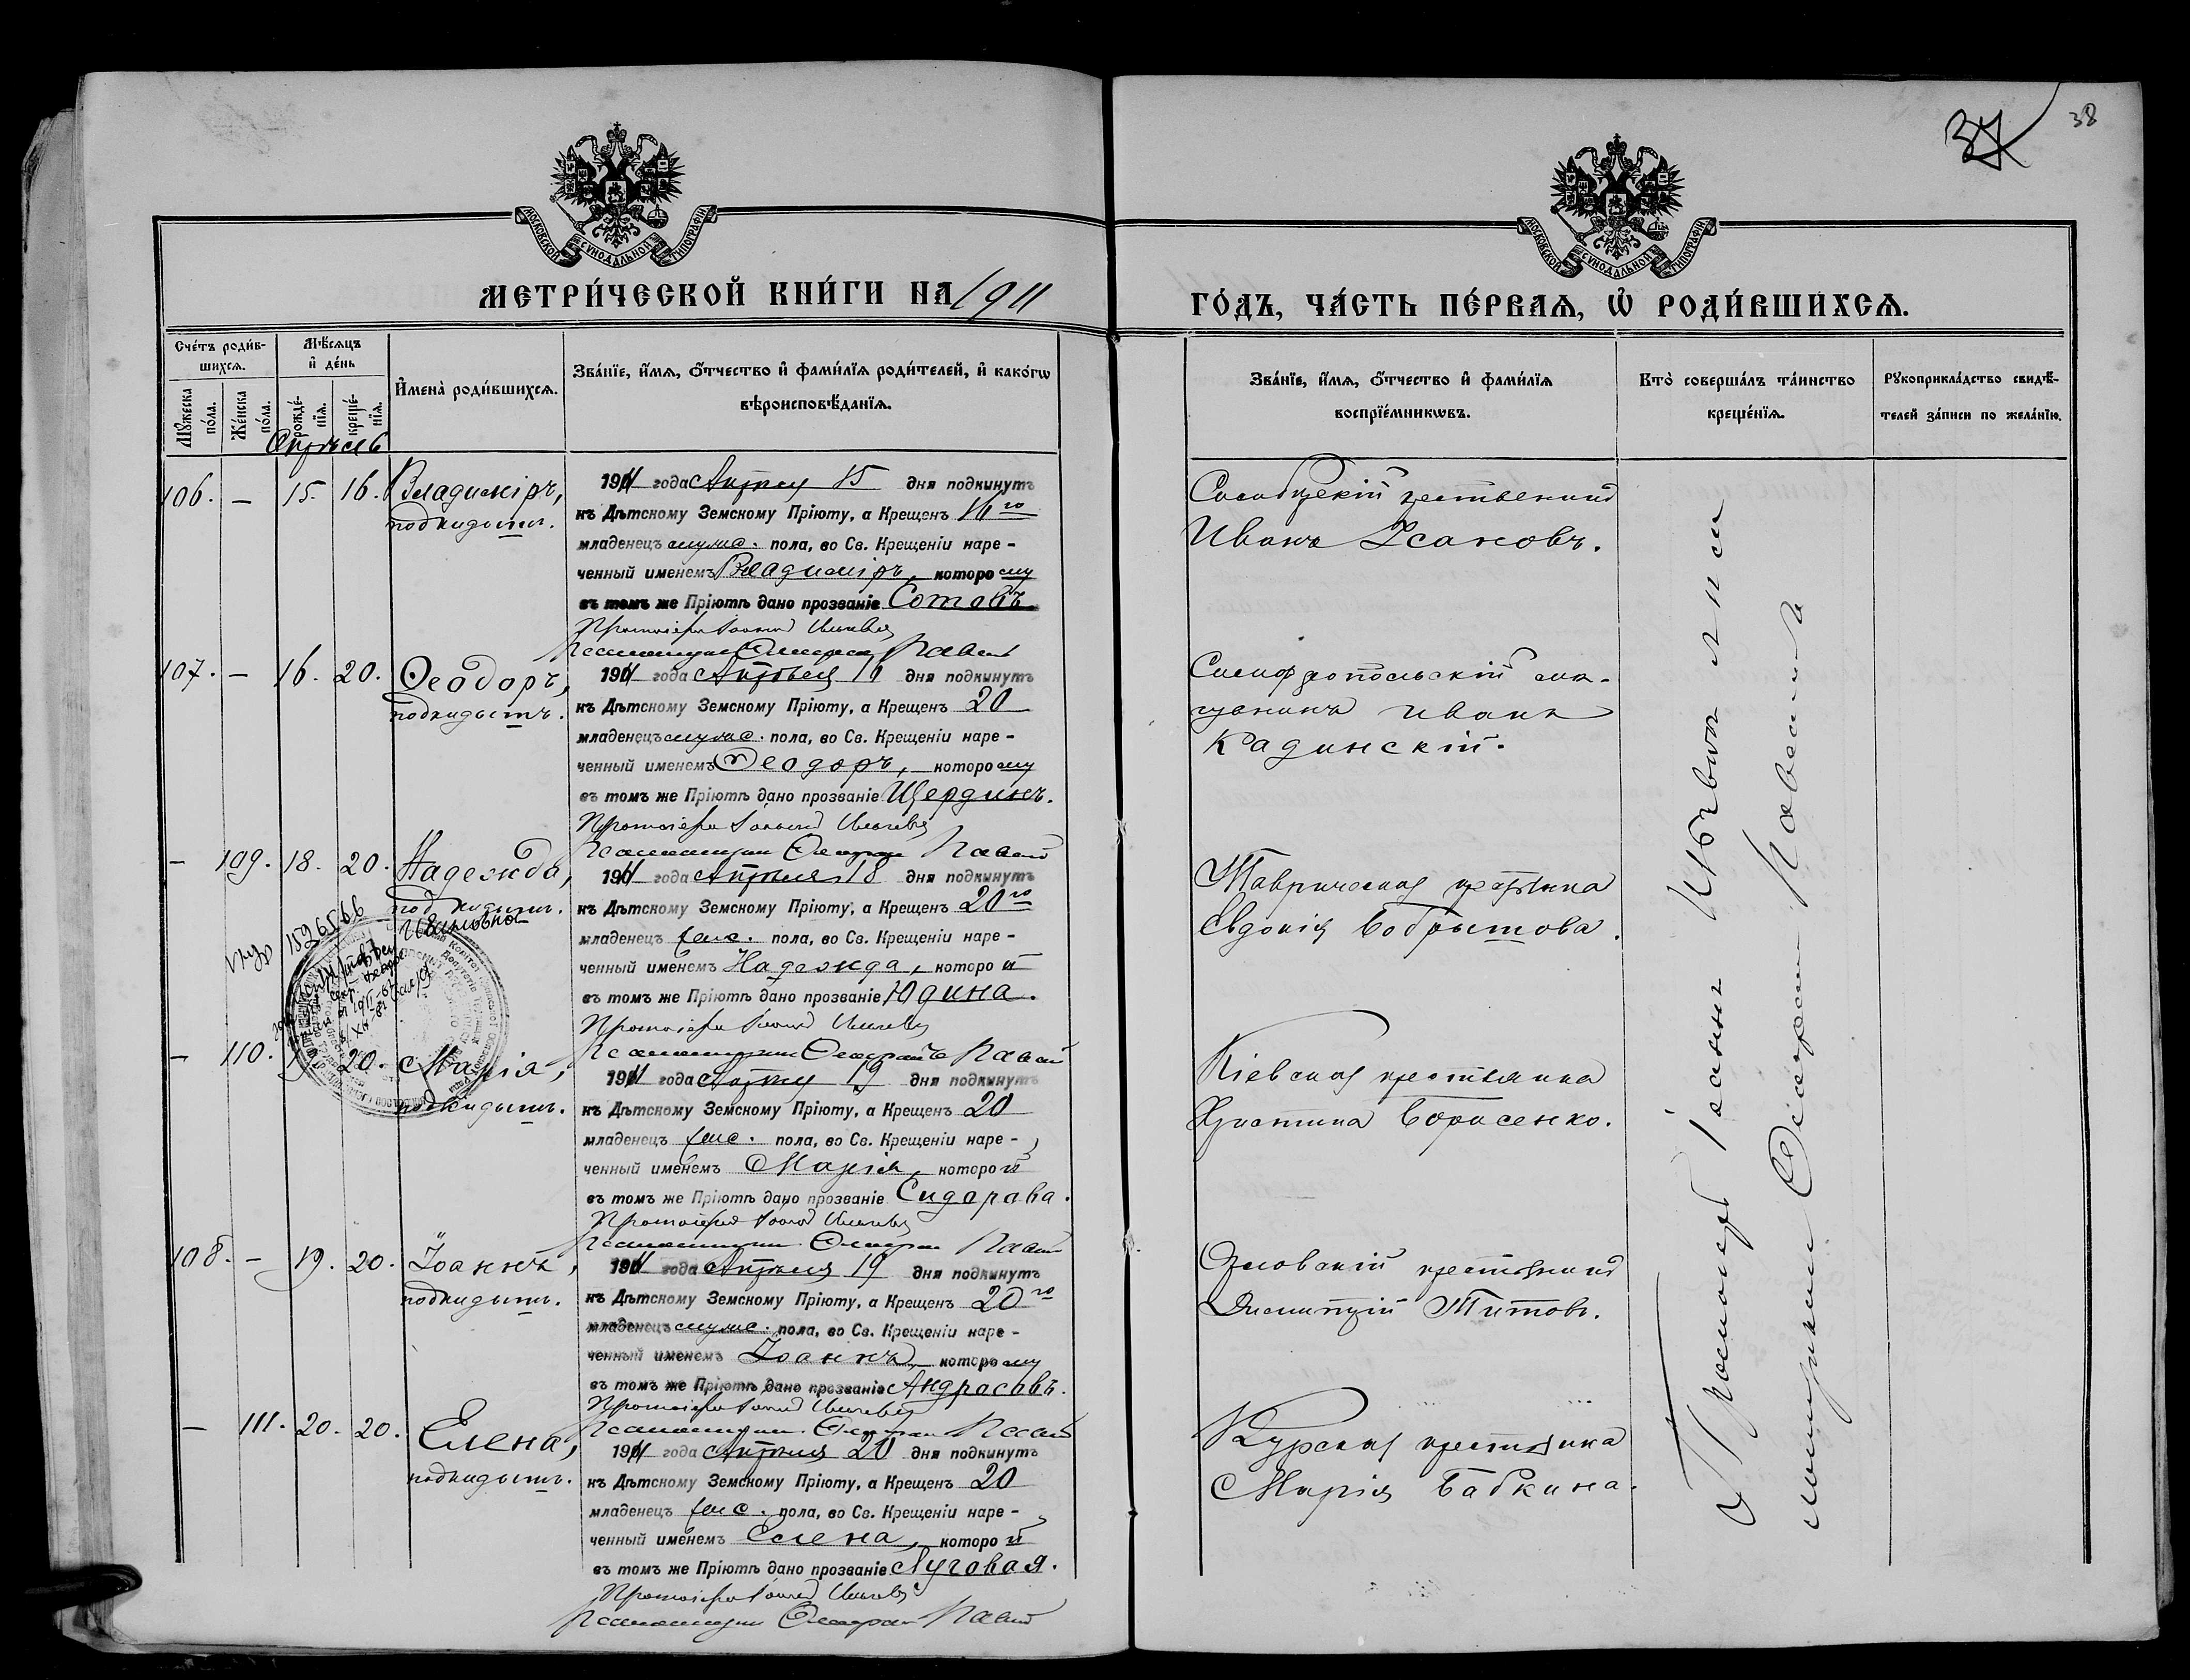 38
МОСКОВСКОЙ СУНОДАЛЬНОЙ ТИПОГРАФІИ
МОСКОВСКОЙ СУНОДАЛЬНОЙ ТИПОГРАФІИ
МЕТРИ́ЧЕСКОЙ КНИ́ГИ НА 1911
ГО́ДЪ, ЧА́СТЬ ПЕ́РВАѦ, Ѡ҆ РОДИ́ВШИХСѦ.
Сче́тъ роди́в-
шихсѧ.
Мꙋ́жеска по́ла.
Же́нска по́ла.
Мѣ́сѧцъ
и҆ де́нь
рожде́-
нїѧ.
креще́-
нїѧ.
И҆мена̀ роди́вшихсѧ.
Зва́нїе, и҆́мѧ, ѻ҆́тчество и҆ фами́лїѧ роди́телей, и҆ како́гѡ
вѣроисповѣ́данїѧ.
Зва́нїе, и҆́мѧ, ѻ҆́тчество и҆ фами́лїѧ
воспрїе́мникѡвъ.
Кто̀ соверша́лъ та́инство
креще́нїѧ.
Рꙋкоприкла́дство свидѣ́-
телей за́писи по жела́нїю.
Апрѣль
106. — 15. 16. Владиміръ,
подкидышъ.
1911 года Апрѣля 15 дня подкинутъ
къ Дѣтскому Земскому Пріюту, а Крещенъ 16го
младенецъ муж. пола, во Св. Крещеніи наре-
ченный именемъ Владиміръ, которому
въ томъ же Пріютѣ дано прозваніе Сотовъ
Протоіерей Іоаннъ
Иванъ
107. — 16. 20. Ѳеодоръ,
подкидышъ.
1911 года Апрѣля 16 дня подкинутъ
къ Дѣтскому Земскому Пріюту, а Крещенъ 20
младенецъ муж. пола, во Св. Крещеніи наре-
ченный именемъ Ѳеодоръ, которому
въ томъ же Пріютѣ дано прозваніе Щердинъ.
Протоіерей Іоаннъ
Симферопольскій мѣ-
щанинъ Иванъ
Кадинскій.
— 109. 18. 20. Надежда,
подкидышъ.
Ивановна
1526566
1911 года Апрѣля 18 дня подкинутъ
къ Дѣтскому Земскому Пріюту, а Крещенъ 20го
младенецъ жен. пола, во Св. Крещеніи наре-
ченный именемъ Надежда, которой
въ томъ же Пріютѣ дано прозваніе Юдина.
Протоіерей Іоаннъ
Таврическая крестьянка
Евдокія Бобрышова.
— 110. 19. 20. Марія,
подкидышъ.
1911 года Апрѣля 19 дня подкинутъ
къ Дѣтскому Земскому Пріюту, а Крещенъ 20
младенецъ жен. пола, во Св. Крещеніи наре-
ченный именемъ Марія, которой
въ томъ же Пріютѣ дано прозваніе Сидорова.
Протоіерей Іоаннъ
Кіевская крестьянка
Христина Борисенко.
108. — 19. 20. Іоаннъ,
подкидышъ.
1911 года Апрѣля 19 дня подкинутъ
къ Дѣтскому Земскому Пріюту, а Крещенъ 20го
младенецъ муж. пола, во Св. Крещеніи наре-
ченный именемъ Іоаннъ, которому
въ томъ же Пріютѣ дано прозваніе Андрасовъ.
Протоіерей Іоаннъ
Орловскій крестьянинъ
Димитрій Титовъ.
— 111. 20. 20. Елена,
подкидышъ.
1911 года Апрѣля 20 дня подкинутъ
къ Дѣтскому Земскому Пріюту, а Крещенъ 20
младенецъ жен. пола, во Св. Крещеніи наре-
ченный именемъ Елена, которой
въ томъ же Пріютѣ дано прозваніе Луговая.
Протоіерей Іоаннъ
Курская крестьянка
Марія Бабкина.
Протоіерей Іоаннъ